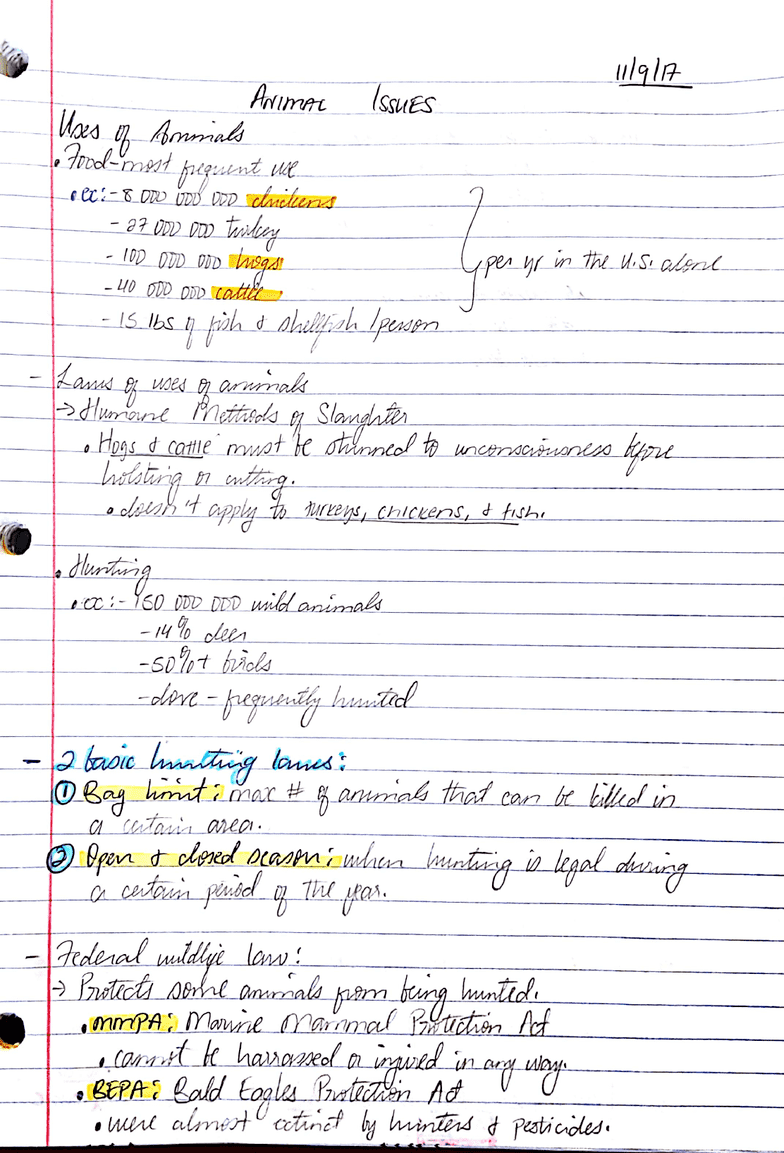 11/9/17
ANIMAL ISSUES
Uses of Animals
• Food - most frequent use
• ex: - 8 000 000 000 chickens
- 27 000 000 turkey
- 100 000 000 hogs
- 40 000 000 cattle
} per yr in the U.S. alone
- 15 lbs of fish & shellfish / person
- Laws of uses of animals
→ Humane Methods of Slaughter
• Hogs & cattle must be stunned to unconsciousness before
hoisting or cutting.
• doesn't apply to turkeys, chickens, & fish.
• Hunting
• ex: - 150 000 000 wild animals
- 14% deer
- 50%+ birds
- dove - frequently hunted
- 2 basic hunting laws:
① Bag limit: max # of animals that can be killed in
a certain area.
② Open & closed season: when hunting is legal during
a certain period of the year.
- Federal wildlife law:
→ Protects some animals from being hunted.
• MMPA: Marine Mammal Protection Act
• cannot be harrassed or injured in any way.
• BEPA: Bald Eagles Protection Act
• were almost extinct by hunters & pesticides.